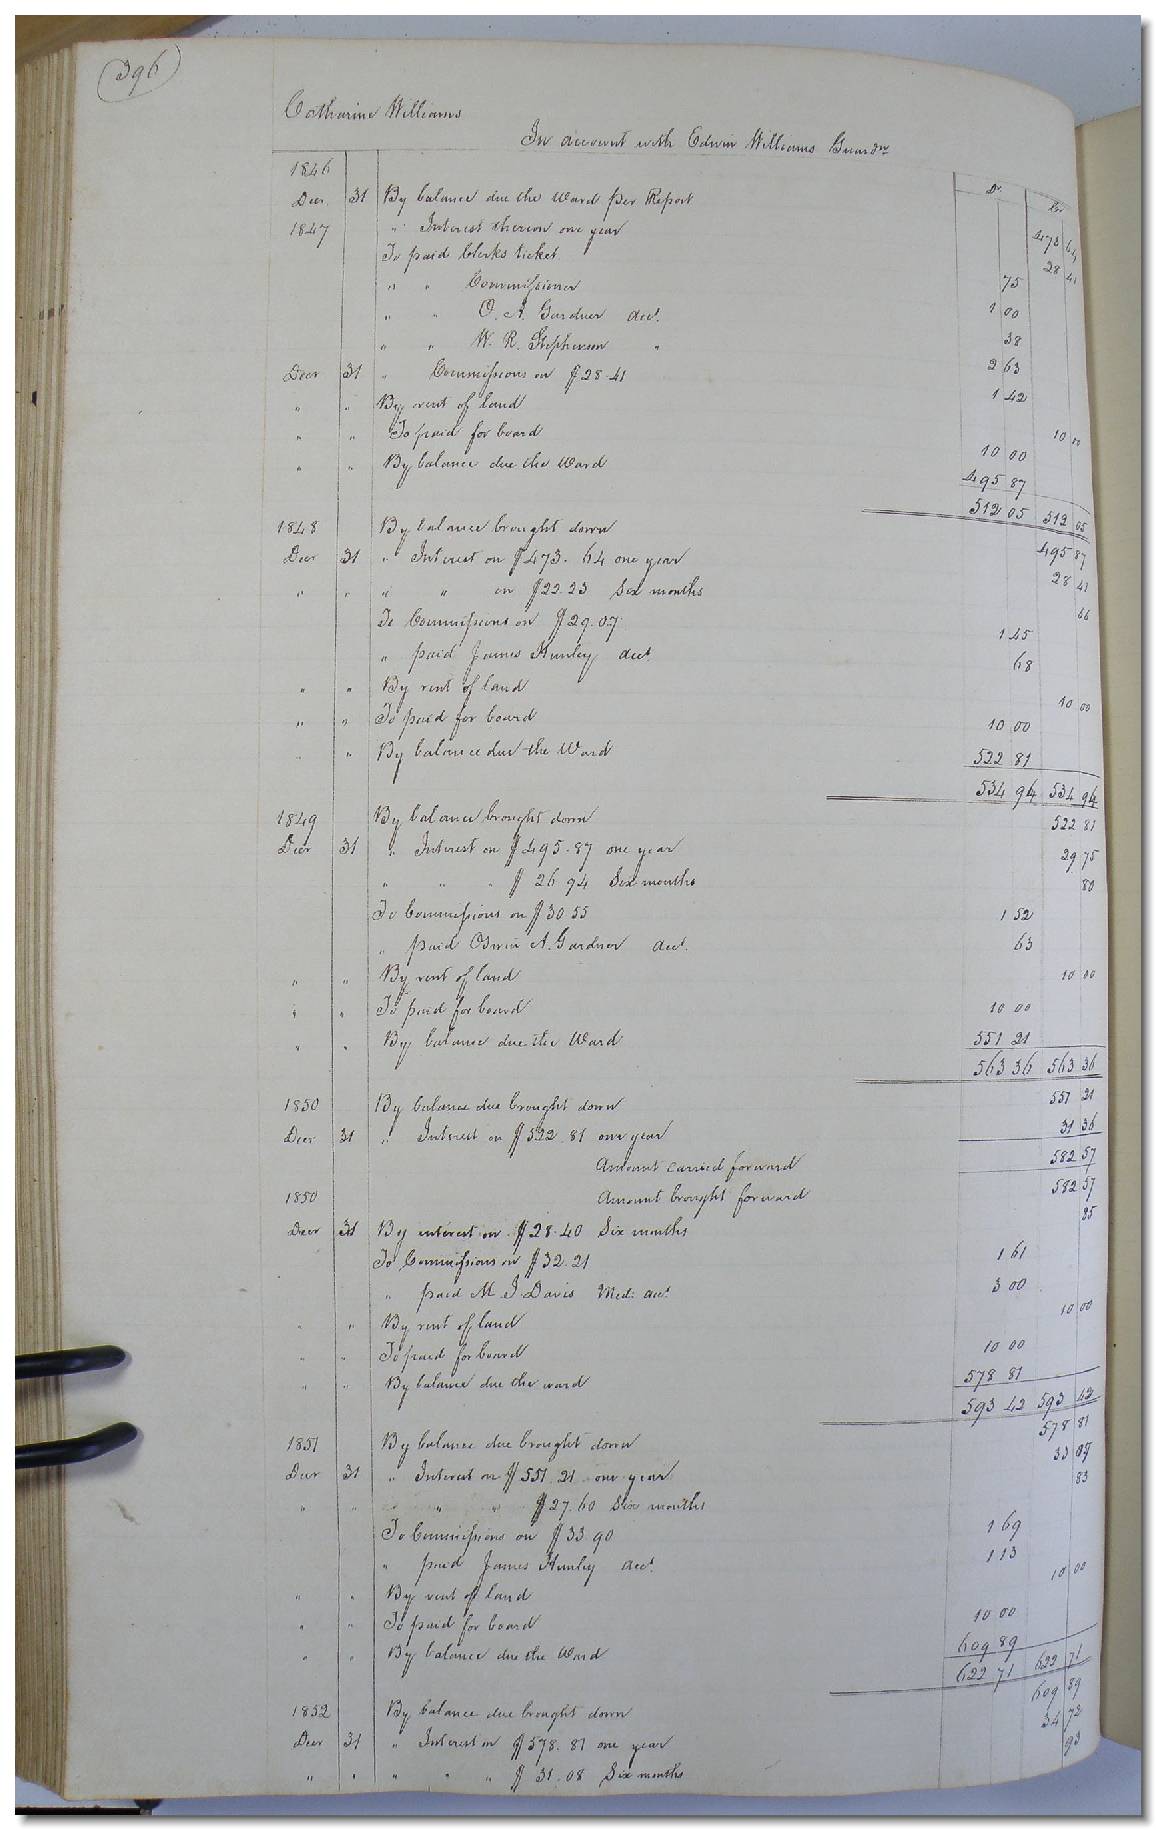 396
Catharine Williams
In account with Edwin Williams Guardn
Dr. Cr.
1846
Decr. 31 By balance due the Ward per Report 473 64
1847 " Interest thereon one year 28 41
To paid Clerks ticket 75
" " Commissioner 1 00
" " O. A. Gardner acct. 38
" " W. R. Stephenson " 2 63
Decr 31 " Commissions on $28.41 1 42
" " By rent of land 10 00
" " To paid for board 10 00
" " By balance due the Ward 495 87
512 05 512 05
1848 By balance brought down 495 87
Decr 31 " Interest on $473.64 one year 28 41
" " " " on $22.23 Six months 66
To Commissions on $29.07 1 45
" paid James Hunley acct. 68
" " By rent of land 10 00
" " To paid for board 10 00
" " By balance due the Ward 522 81
534 94 534 94
1849 By balance brought down 522 81
Decr 31 " Interest on $495.87 one year 29 75
" " " $26 94 Six months 80
To Commissions on $30 55 1 52
" paid A. Gardner acct. 63
" " By rent of land 10 00
" " To paid for board 10 00
" " By balance due the Ward 551 21
563 36 563 36
1850 By balance due brought down 551 21
Decr 31 " Interest on $522.81 one year 31 36
Amount carried forward 582 57
1850 Amount brought forward 582 57
Decr 31 By interest on $28.40 Six months 85
To Commissions on $32.21 1 61
" paid M J Davis Med: acct. 3 00
" " By rent of land 10 00
" " To paid for board 10 00
" " By balance due the ward 578 81
593 42 593 42
1851 By balance due brought down 578 81
Decr 31 " Interest on $551.21 one year 33 07
" " " " " $27.60 Six months 83
To Commissions on $33 90 1 69
" paid James Hunley acct. 1 13
" " By rent of land 10 00
" " To paid for board 10 00
" " By balance due the Ward 609 89
622 71 622 71
1852 By balance due brought down 609 89
Decr 31 " Interest on $578.81 one year 34 72
" " " " " $31.08 Six months 93